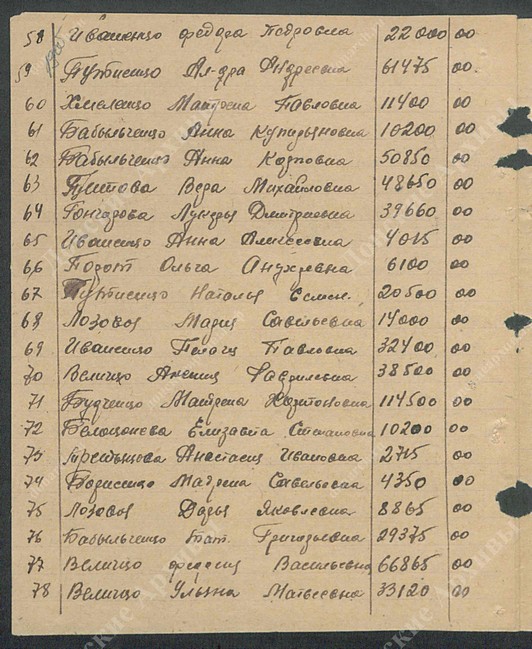 58 Иваненко Федора Петровна 22000 00
59 Путиенко Ал-дра Андреевна 61475 00
60 Хмеленко Матрена Павловна 11400 00
61 Бабыльченко Анна Куприяновна 10200 00
62 Бабыльченко Анна Карповна 50850 00
63 Титова Вера Михайловна 48650 00
64 Гончарова Лукерья Дмитриевна 39660 00
65 Иваненко Анна Алексеевна 4015 00
66 Ольга 6100 00
67 Путиенко Наталья Семен. 20500 00
68 Лозовая Мария Савельевна 14000 00
69 Иваненко Пелагея Павловна 32400 00
70 Величко Аксения Гавриловна 38500 00
71 Будченко Матрена Харитоновна 114500 00
72 Белоконева Елизавета Степановна 10200 00
73 Анастасия Ивановна 2715 00
74 Борисенко Матрена Савельевна 4350 00
75 Лозовая Дарья Яковлевна 8865 00
76 Бабыльченко Тат. Григорьевна 29375 00
77 Величко Васильевна 66865 00
78 Величко Ульяна Матвеевна 33120 00